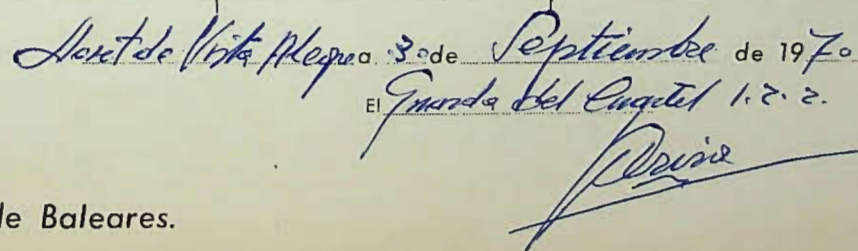 Lloret de Vista Alegre a 30 de Septiembre de 1970
El Guarda del Cuartel 1. 2. 2.
de Baleares.